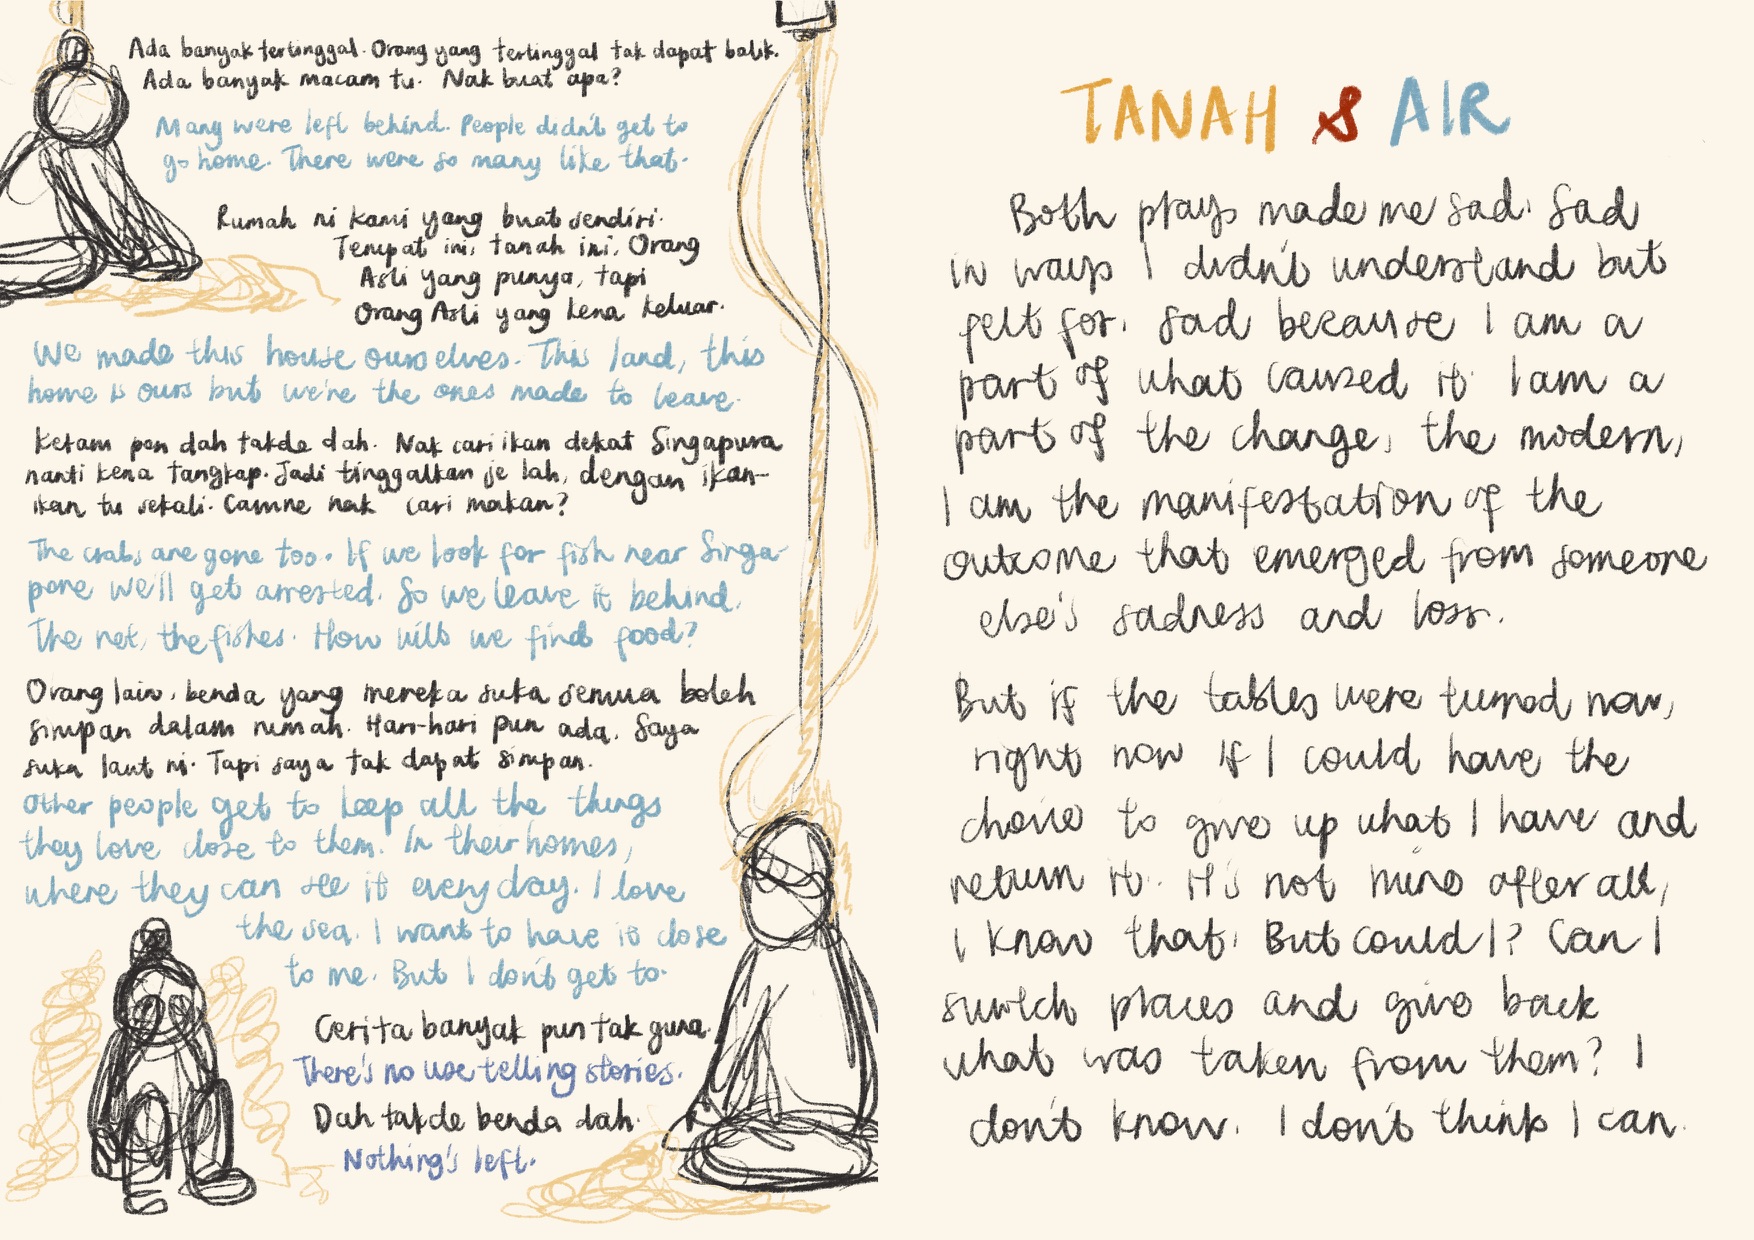 Ada banyak tertinggal. Orang yang tertinggal tak dapat balik.
Ada banyak macam tu. Nak buat apa?
Many were left behind. People didn't get to
go home. There were so many like that.
Rumah ni kami yang buat sendiri.
Tempat ini, tanah ini, Orang
Asli yang punya, tapi
Orang Asli yang kena keluar.
We made this house ourselves. This land, this
home is ours but we're the ones made to leave.
Ketam pon dah takde dah. Nak cari ikan dekat Singapura
nanti kena tangkap. Jadi tinggalkan je lah, dengan ikan-
ikan tu sekali. Camne nak cari makan?
The crabs are gone too. If we look for fish near Singa-
pore we'll get arrested. So we leave it behind.
The net, the fishes. How will we find food?
Orang lain, benda yang mereka suka semua boleh
simpan dalam rumah. Hari-hari pun ada. Saya
suka laut ni. Tapi saya tak dapat simpan.
Other people get to keep all the things
they love close to them. In their homes,
where they can see it every day. I love
the sea. I want to have it close
to me. But I don't get to.
Cerita banyak pun tak guna.
There's no use telling stories.
Dah takde benda dah.
Nothing's left.
TANAH & AIR
Both plays made me sad. Sad
in ways I didn't understand but
felt for. Sad because I am a
part of what caused it. I am a
part of the change, the modern,
I am the manifestation of the
outcome that emerged from someone
else's sadness and loss.
But if the tables were turned now,
right now if I could have the
choice to give up what I have and
return it. It's not mine after all,
I know that. But could I? Can I
switch places and give back
what was taken from them? I
don't know. I don't think I can.